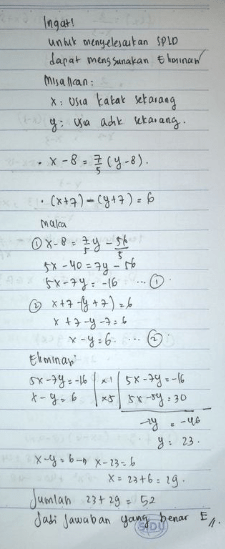 Ingat!
untuk menyelesaikan SPLD
dapat menggunakan Eliminasi
Misalkan:
x: usia kakak sekarang
y: usia adik sekarang.
• x - 8 = 7/5 (y-8).
• (x+7) - (y+7) = 6
Maka
① x-8 = 7/5 y - 56/5
5x - 40 = 7y - 56
5x - 7y = -16 ... ①
② x+7-(y+7) = 6
x+7-y-7 = 6
x-y = 6 ... ②
Eliminasi
5x-7y = -16 | x1 | 5x-7y = -16
x-y = 6 | x5 | 5x-5y = 30
-2y = -46
y = 23.
x-y = 6 → x-23 = 6
x = 23+6 = 29.
Jumlah 23+29 = 52
Jadi jawaban yang benar E //